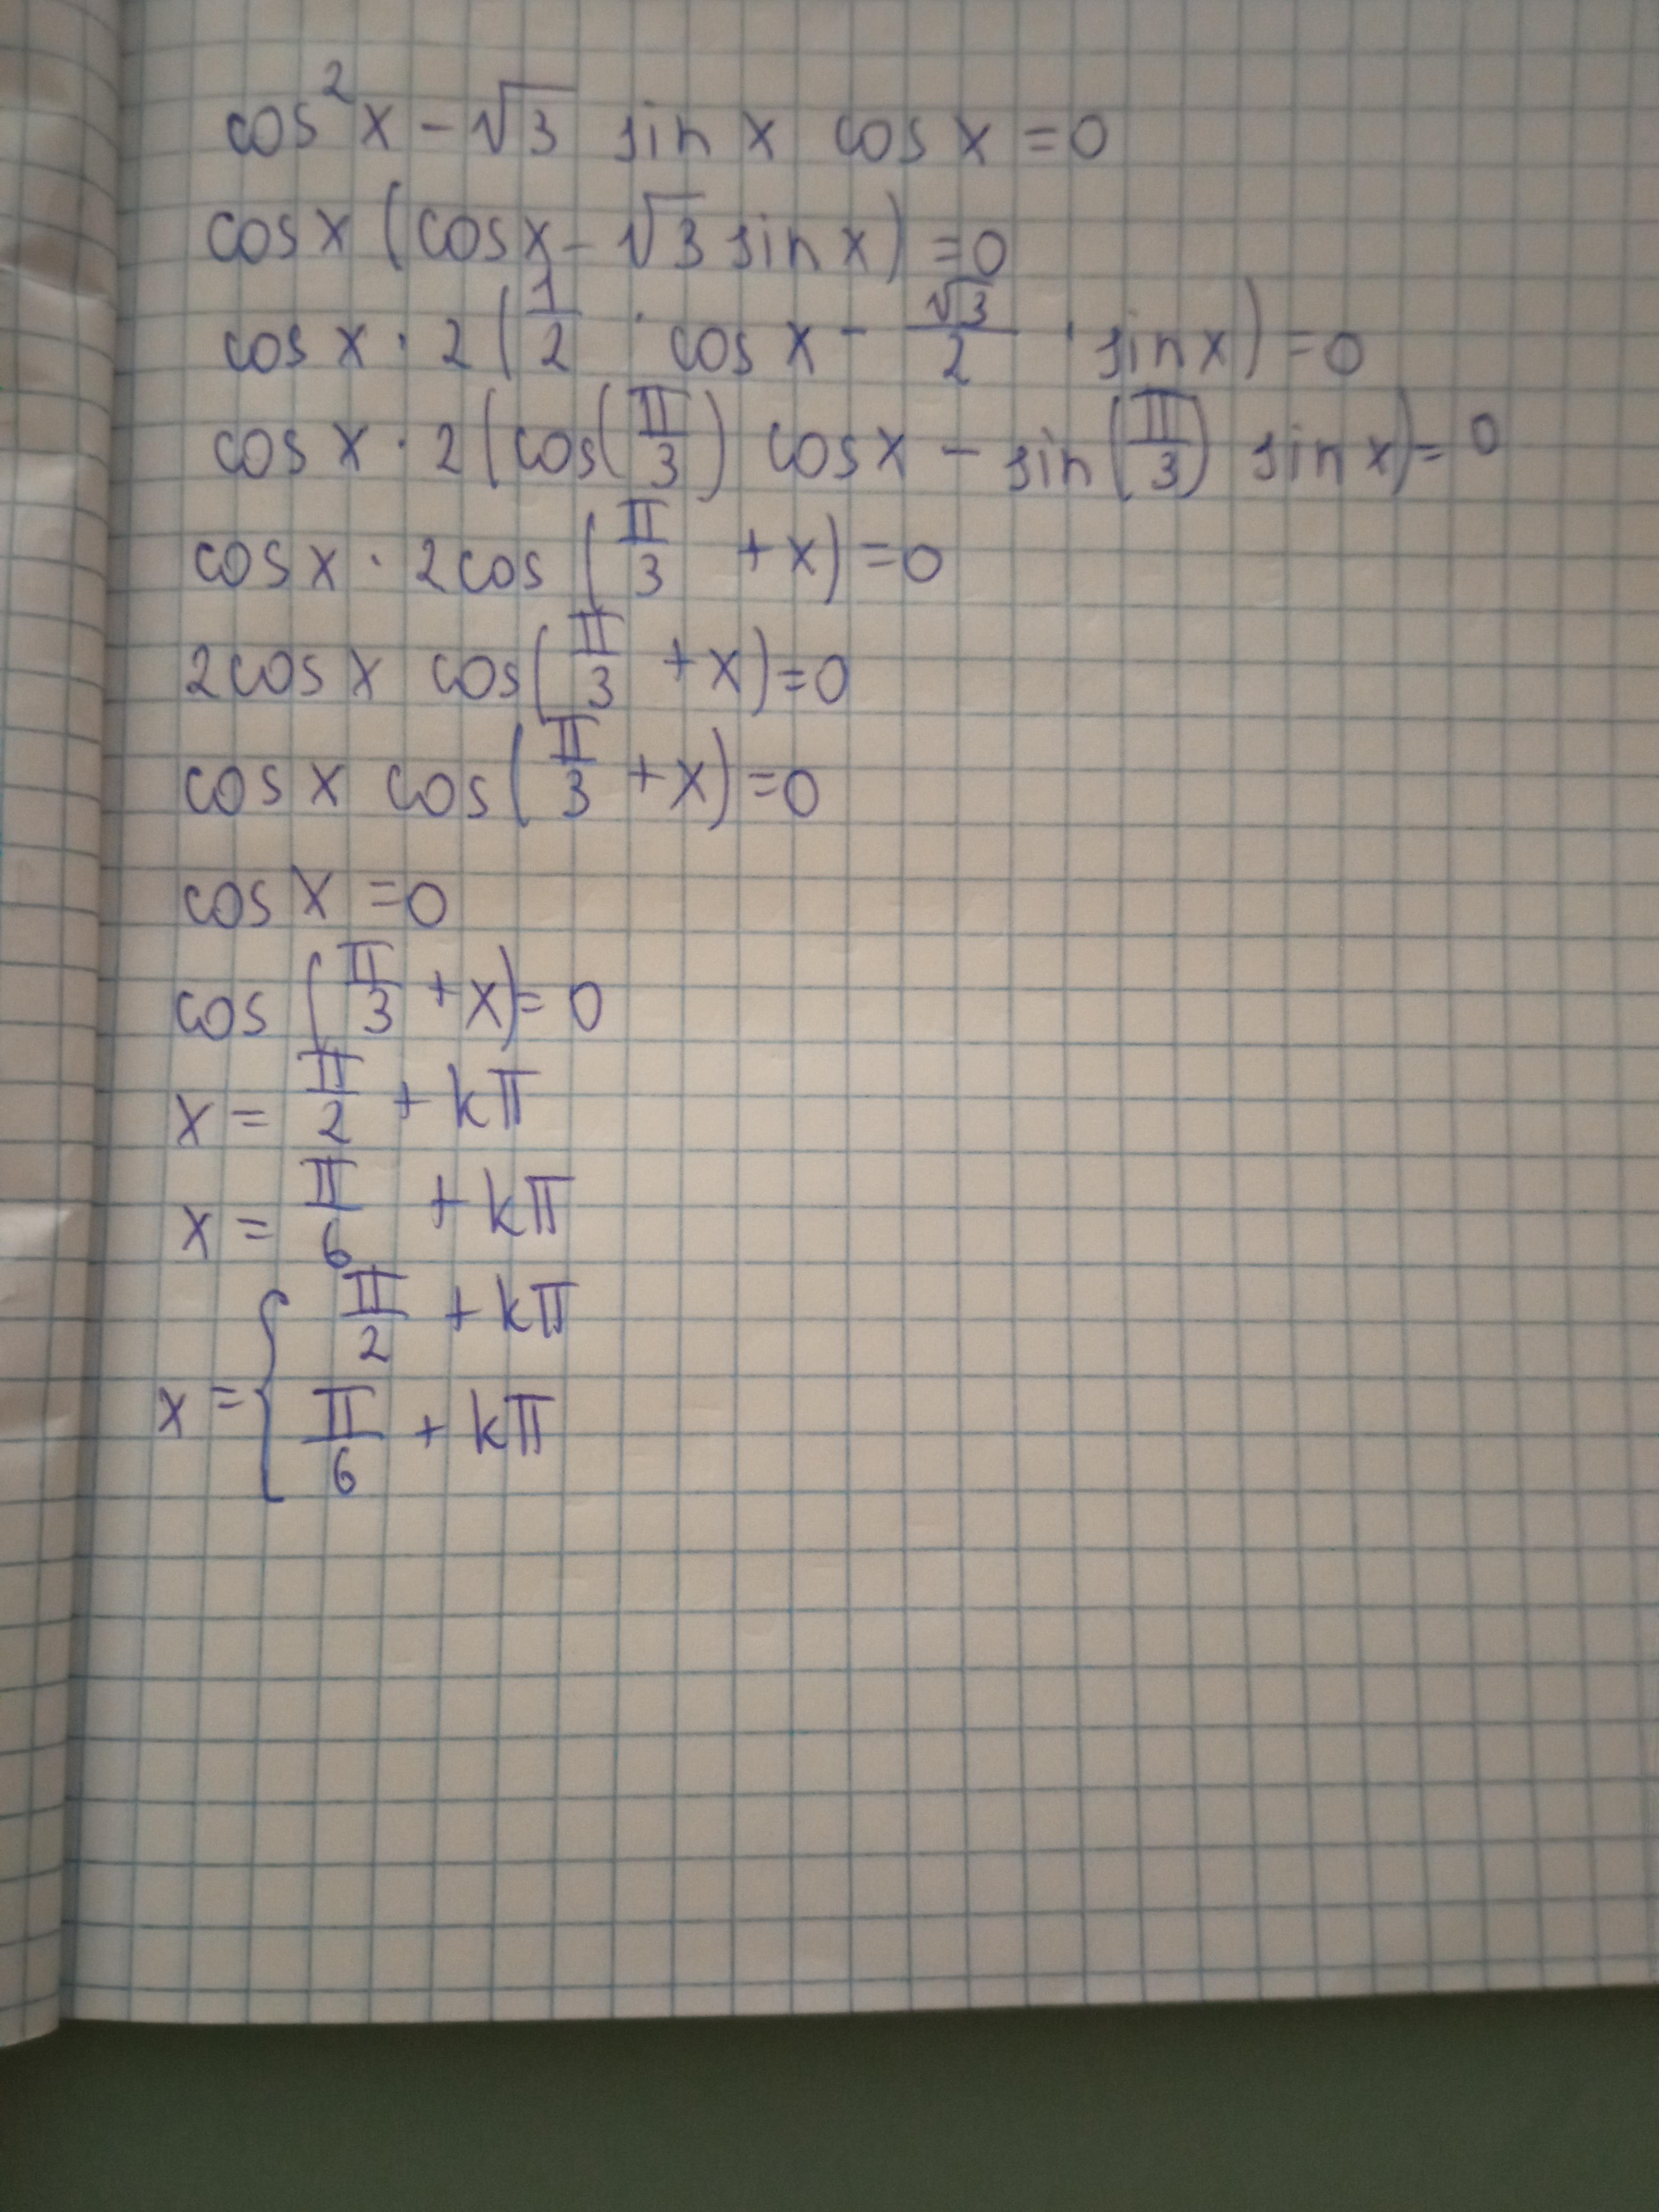 cos²x - √3 sin x cos x = 0
cos x (cos x - √3 sin x) = 0
cos x · 2 (1/2 · cos x - √3/2 · sin x) = 0
cos x · 2 (cos(π/3) cos x - sin(π/3) sin x) = 0
cos x · 2cos (π/3 + x) = 0
2cos x cos(π/3 + x) = 0
cos x cos(π/3 + x) = 0
cos x = 0
cos (π/3 + x) = 0
x = π/2 + kπ
x = π/6 + kπ
x = { π/2 + kπ
π/6 + kπ